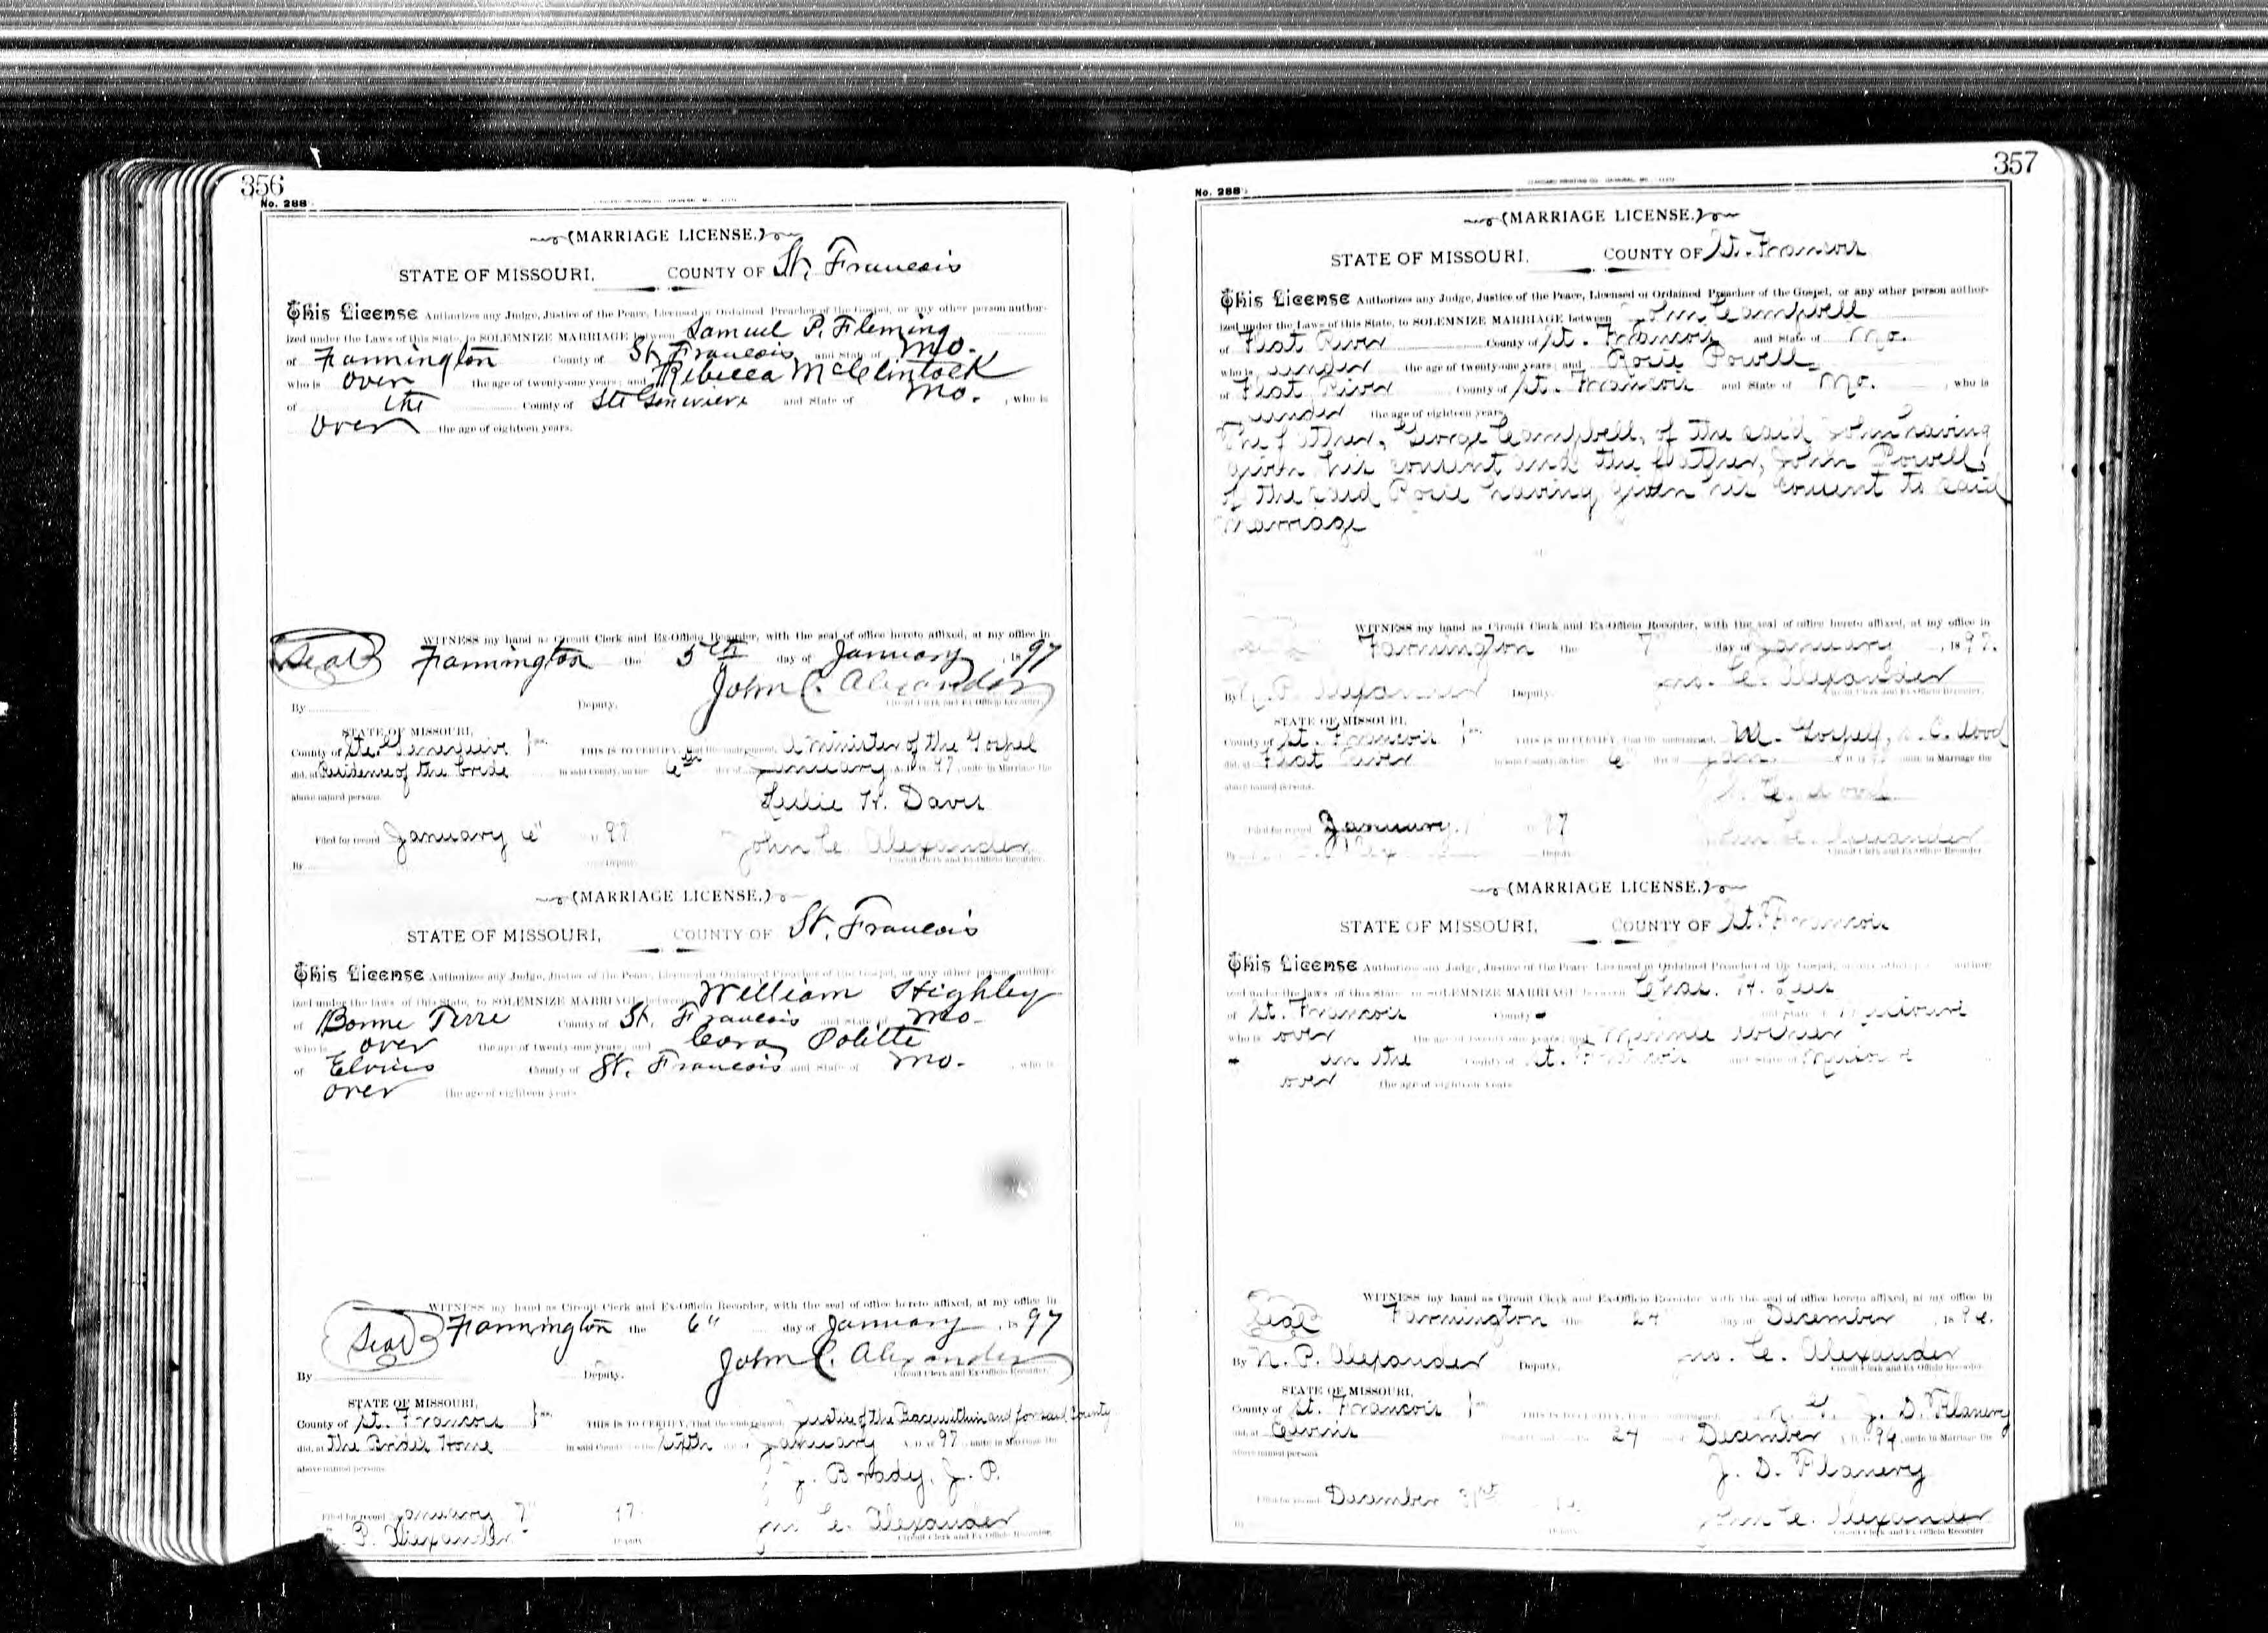 356
No. 288
(MARRIAGE LICENSE.)
STATE OF MISSOURI, COUNTY OF St. Francois
This License Authorizes any Judge, Justice of the Peace, Licensed or Ordained Preacher of the Gospel, or any other person author-
ized under the Laws of this State, to SOLEMNIZE MARRIAGE between Samuel P. Fleming
of Farmington County of St. Francois and State of Mo.
who is over the age of twenty-one years; and Rebecca McClintock
of the County of Ste Genevieve and State of Mo. , who is
over the age of eighteen years.
WITNESS my hand as Circuit Clerk and Ex-Officio Recorder, with the seal of office hereto affixed, at my office in
Seal Farmington the 5th day of January , 1897
John C. Alexander
By Deputy. Circuit Clerk and Ex-Officio Recorder.
STATE OF MISSOURI,
County of Ste. Genevieve ss. THIS IS TO CERTIFY, that the undersigned, A minister of the Gospel
did, at Residence of the bride in said County, on the 6th day of January A. D. 1897, unite in Marriage the
above named persons.
Leslie H. Davis
Filed for record January 6" 97
John C. Alexander
By Deputy. Circuit Clerk and Ex-Officio Recorder.
(MARRIAGE LICENSE.)
STATE OF MISSOURI, COUNTY OF St. Francois
This License Authorizes any Judge, Justice of the Peace, Licensed or Ordained Preacher of the Gospel, or any other person author-
ized under the laws of this State, to SOLEMNIZE MARRIAGE between William Highley
of Bonne Terre County of St. Francois and State of Mo.
who is over the age of twenty-one years; and Cora Politte
of Elvins County of St. Francois and State of Mo. , who is
over the age of eighteen years
WITNESS my hand as Circuit Clerk and Ex-Officio Recorder, with the seal of office hereto affixed, at my office in
Seal Farmington the 6" day of January , 1897
John C. Alexander
By Deputy. Circuit Clerk and Ex-Officio Recorder.
STATE OF MISSOURI,
County of St. Francois ss. THIS IS TO CERTIFY, that the undersigned, Justice of the Peace within and for said County
did, at the Brides Home in said County on the sixth day of January A. D. 1897 unite in Marriage the
above named persons
J. Brady, J. P.
Filed for record January 7" 97
Jno C. Alexander
P. Alexander Deputy Circuit Clerk and Ex-Officio Recorder.
357
No. 288
(MARRIAGE LICENSE.)
STATE OF MISSOURI, COUNTY OF St. Francois
This License Authorizes any Judge, Justice of the Peace, Licensed or Ordained Preacher of the Gospel, or any other person author-
ized under the Laws of this State, to SOLEMNIZE MARRIAGE between John Campbell
of Flat River County of St. Francois and State of Mo.
who is under the age of twenty-one years; and Rosie Powell
of Flat River County of St. Francois and State of Mo. , who is
under the age of eighteen years
The father, George Campbell, of the said John having
given his consent and the father, John Powell,
of the said Rosie having given his consent to said
marriage
WITNESS my hand as Circuit Clerk and Ex-Officio Recorder, with the seal of office hereto affixed, at my office in
Farmington the 7" day of January , 1897.
Jno. C. Alexander
By N. P. Alexander Deputy. Circuit Clerk and Ex-Officio Recorder.
STATE OF MISSOURI,
County of St. Francois ss. THIS IS TO CERTIFY, that the undersigned, M. Gospel, C. Wood
did, at Flat River in said County, on the 6" day of Jan. unite in Marriage the
above named persons.
Wood
Filed for record January 97
John C. Alexander
Deputy Circuit Clerk and Ex-Officio Recorder
(MARRIAGE LICENSE.)
STATE OF MISSOURI, COUNTY OF St. Francois
This License Authorizes any Judge, Justice of the Peace Licensed or Ordained Preacher of the Gospel, or any other person author-
ized under the laws of this State to SOLEMNIZE MARRIAGE between Chas. H.
of St. Francois County and State of Missouri
who is over the age of twenty-one years; and Minnie
in the County of St. Francois and State of Missouri
over the age of eighteen years
WITNESS my hand as Circuit Clerk and Ex-Officio Recorder with the seal of office hereto affixed, at my office in
Seal Farmington the 24 day of December , 1896.
Jno. C. Alexander
By N. P. Alexander Deputy. Circuit Clerk and Ex-Officio Recorder
STATE OF MISSOURI,
County of St. Francois ss. THIS IS TO CERTIFY, J. D. Flanery
did, at Elvins 24 December 96, unite in Marriage the
above named persons
J. D. Flanery
Filed for record December 31st
John C. Alexander
By Deputy Circuit Clerk and Ex-Officio Recorder